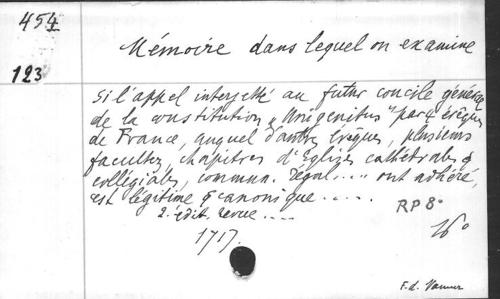 454
123
Mémoire dans lequel on examine
si l'appel interjetté au futur concile général
de la constitution „Unigenitus" par 4 évêques
de France, auquel d'autres évêques, plusieurs
facultez, chapitres d'Eglizes cathédrales &
collégiales, commun. régul.... ont adhéré,
est légitime & canonique.....
2. édit. revue....
RP 8°
1717.
16°
F.d.